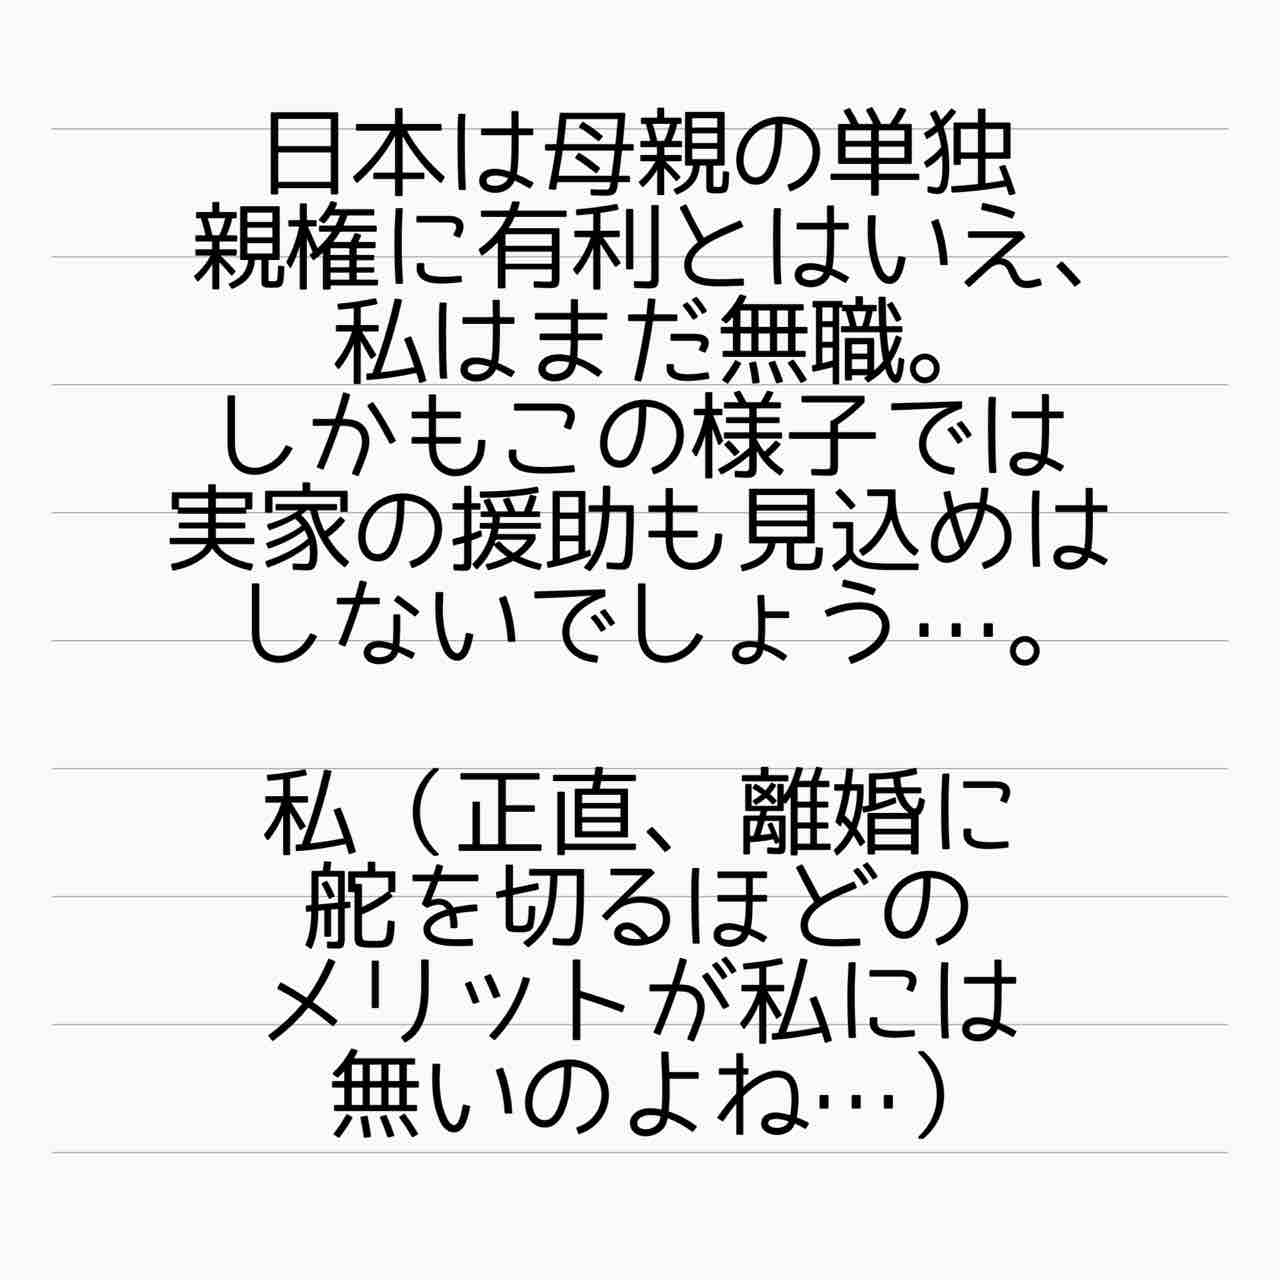 日本は母親の単独
親権に有利とはいえ、
私はまだ無職。
しかもこの様子では
実家の援助も見込めは
しないでしょう…。
私（正直、離婚に
舵を切るほどの
メリットが私には
無いのよね…）